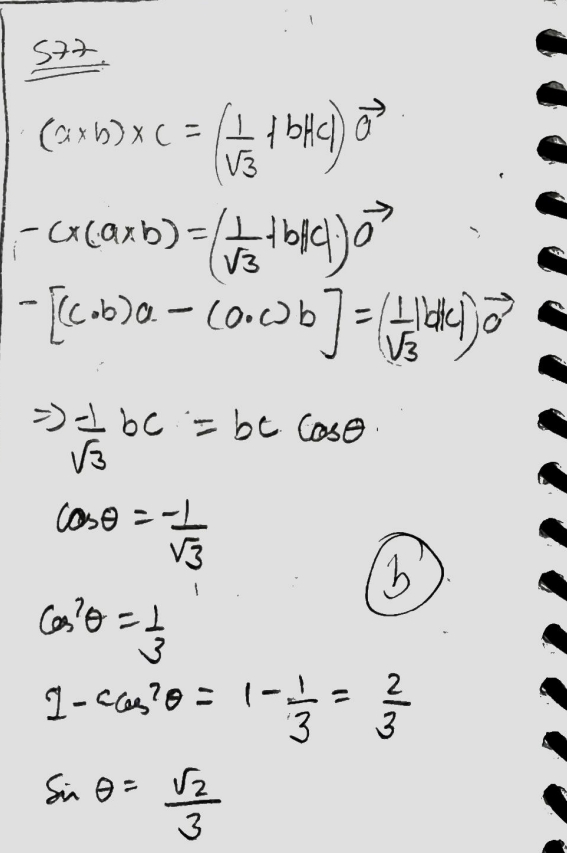 577.
(a×b)×c = (1/√3 |b||c|) a⃗
-c×(a×b) = (1/√3 |b||c|) a⃗
-[(c.b)a - (a.c)b] = (1/√3 |b||c|) a⃗
=> -1/√3 bc = bc Cosθ.
Cosθ = -1/√3
b
Cos²θ = 1/3
1-cos²θ = 1 - 1/3 = 2/3
Sin θ = √2/3